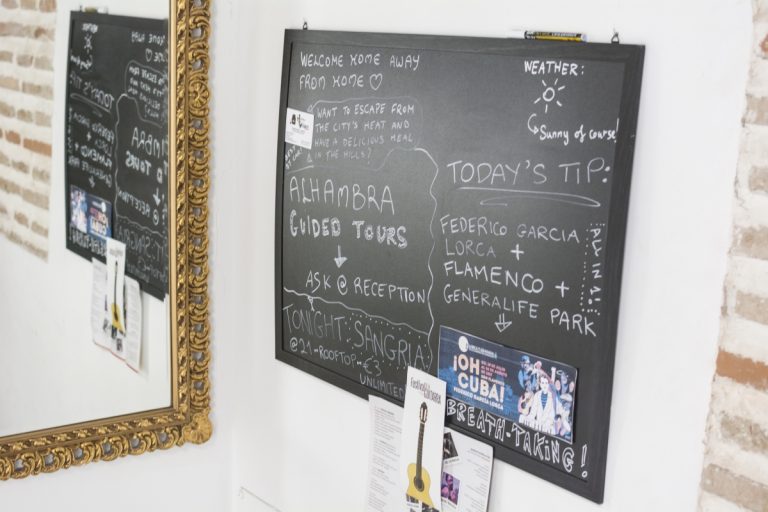 WELCOME HOME AWAY
FROM HOME ♡
WANT TO ESCAPE FROM
THE CITY'S HEAT AND
HAVE A DELICIOUS MEAL
IN THE HILLS?
ALHAMBRA
GUIDED TOURS
↓
ASK @ RECEPTION
TONIGHT: SANGRIA
@21-ROOFTOP-€3
UNLIMITED
WEATHER:
Sunny of course!
TODAY'S TIP:
FEDERICO GARCIA
LORCA +
FLAMENCO +
GENERALIFE PARK
ALL IN 1!
¡OH
CUBA!
FEDERICO GARCÍA LORCA
BREATH-TAKING!
Festival de la